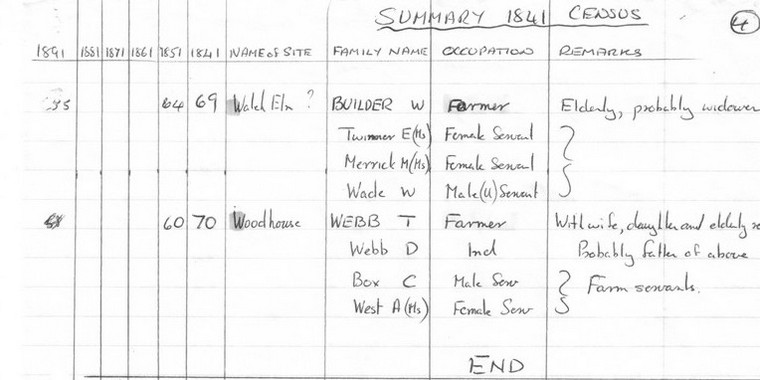 SUMMARY 1841 CENSUS 4
1891 1881 1871 1861 1851 1841 NAME of SITE FAMILY NAME OCCUPATION REMARKS
64 69 Walch Elm ? BUILDER W Farmer Elderly, probably widower
E (Ms) Female Servant
Merrick M (Ms) Female Servant
Wade W Male (U) Servant
60 70 Woodhouse WEBB T Farmer With wife, daughter and elderly
Webb D Ind Probably father of above
Box C Male Serv Farm servants.
West A (Ms) Female Serv
END